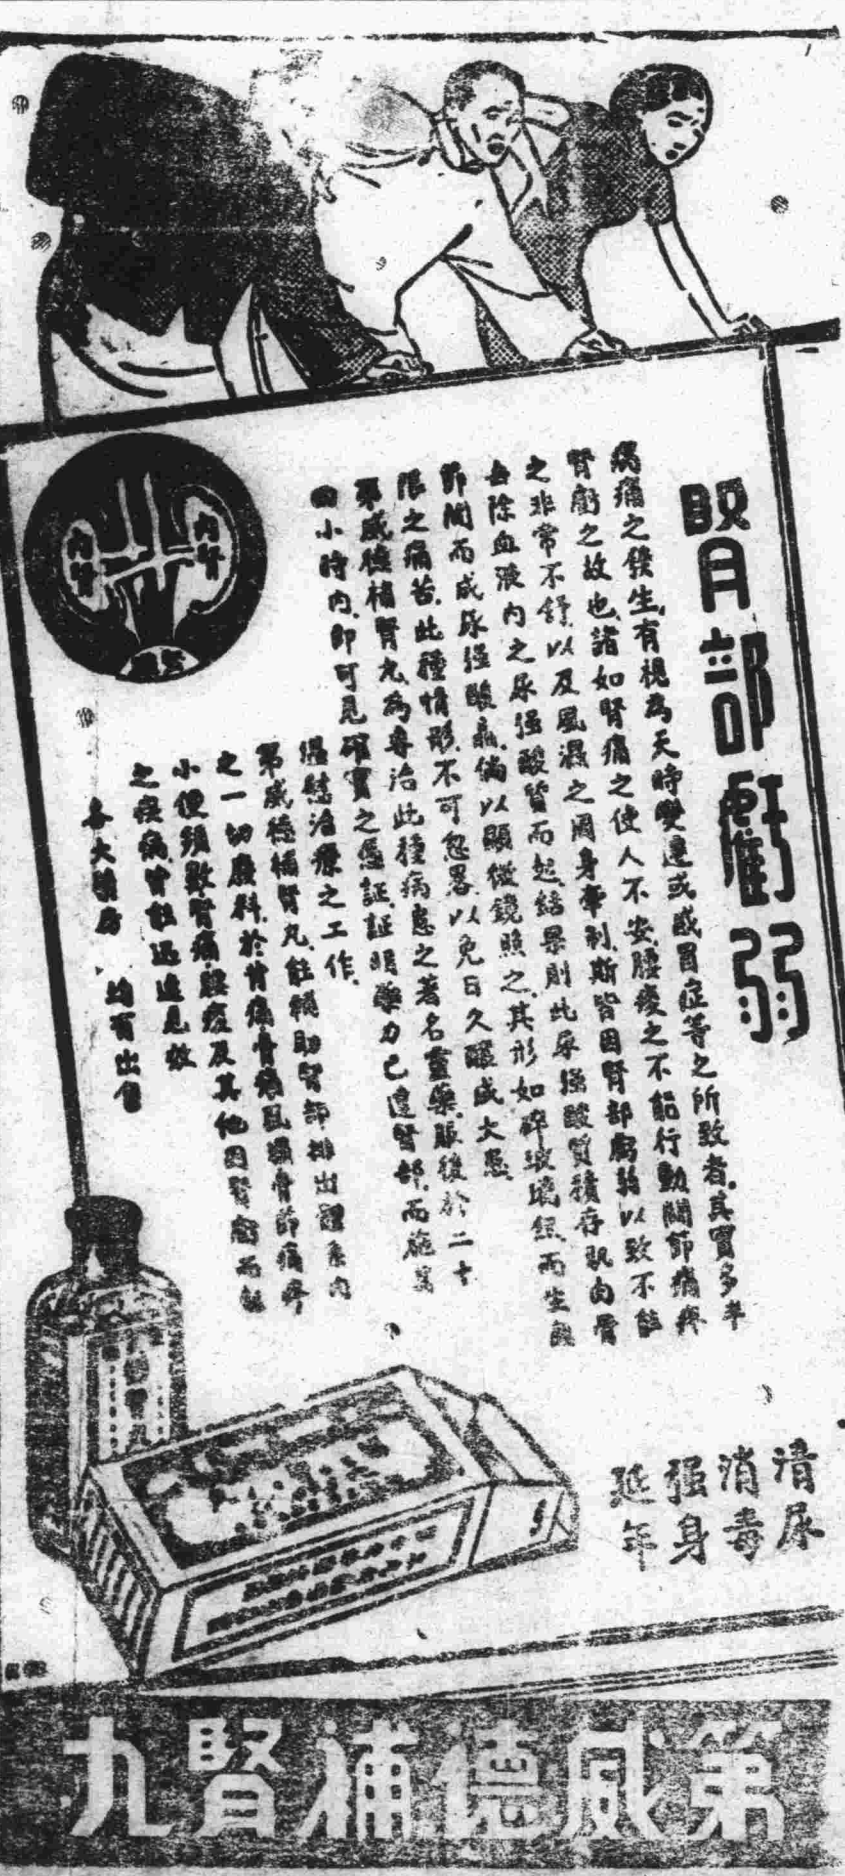 腎部虧弱
病痛之發生,有視為天時變遷或感冒症等之所致者,其實多半
腎虧之故也,諸如腎痛之使人不安,腰痠之不能行動,關節痛疼
之非常不舒,以及風濕之周身牽制,斯皆因腎部虧弱以致不能
去除血液內之尿强酸質而起,結果則此尿强酸質積存肌肉骨
節間而成尿强酸晶,倘以顯微鏡照之,其形如碎玻璃然,而生無
限之痛苦,此種情形,不可忽畧,以免日久釀成大患,
第威德補腎丸,為專治此種病患之著名靈藥,服後於二十
四小時內,即可見確實之憑証,証明藥力已達腎部,而施其
溫慰治療之工作.
第威德補腎丸,能輔助腎部排出體系內
之一切廢料,於背痛骨痛風濕骨節痛疼
小便頻數腎痛,腰痠及其他因腎虧而起
之疾病,皆能迅速見效
各大藥房 均有出售
內腎
內腎
清尿
消毒
强身
延年
第威德補腎丸